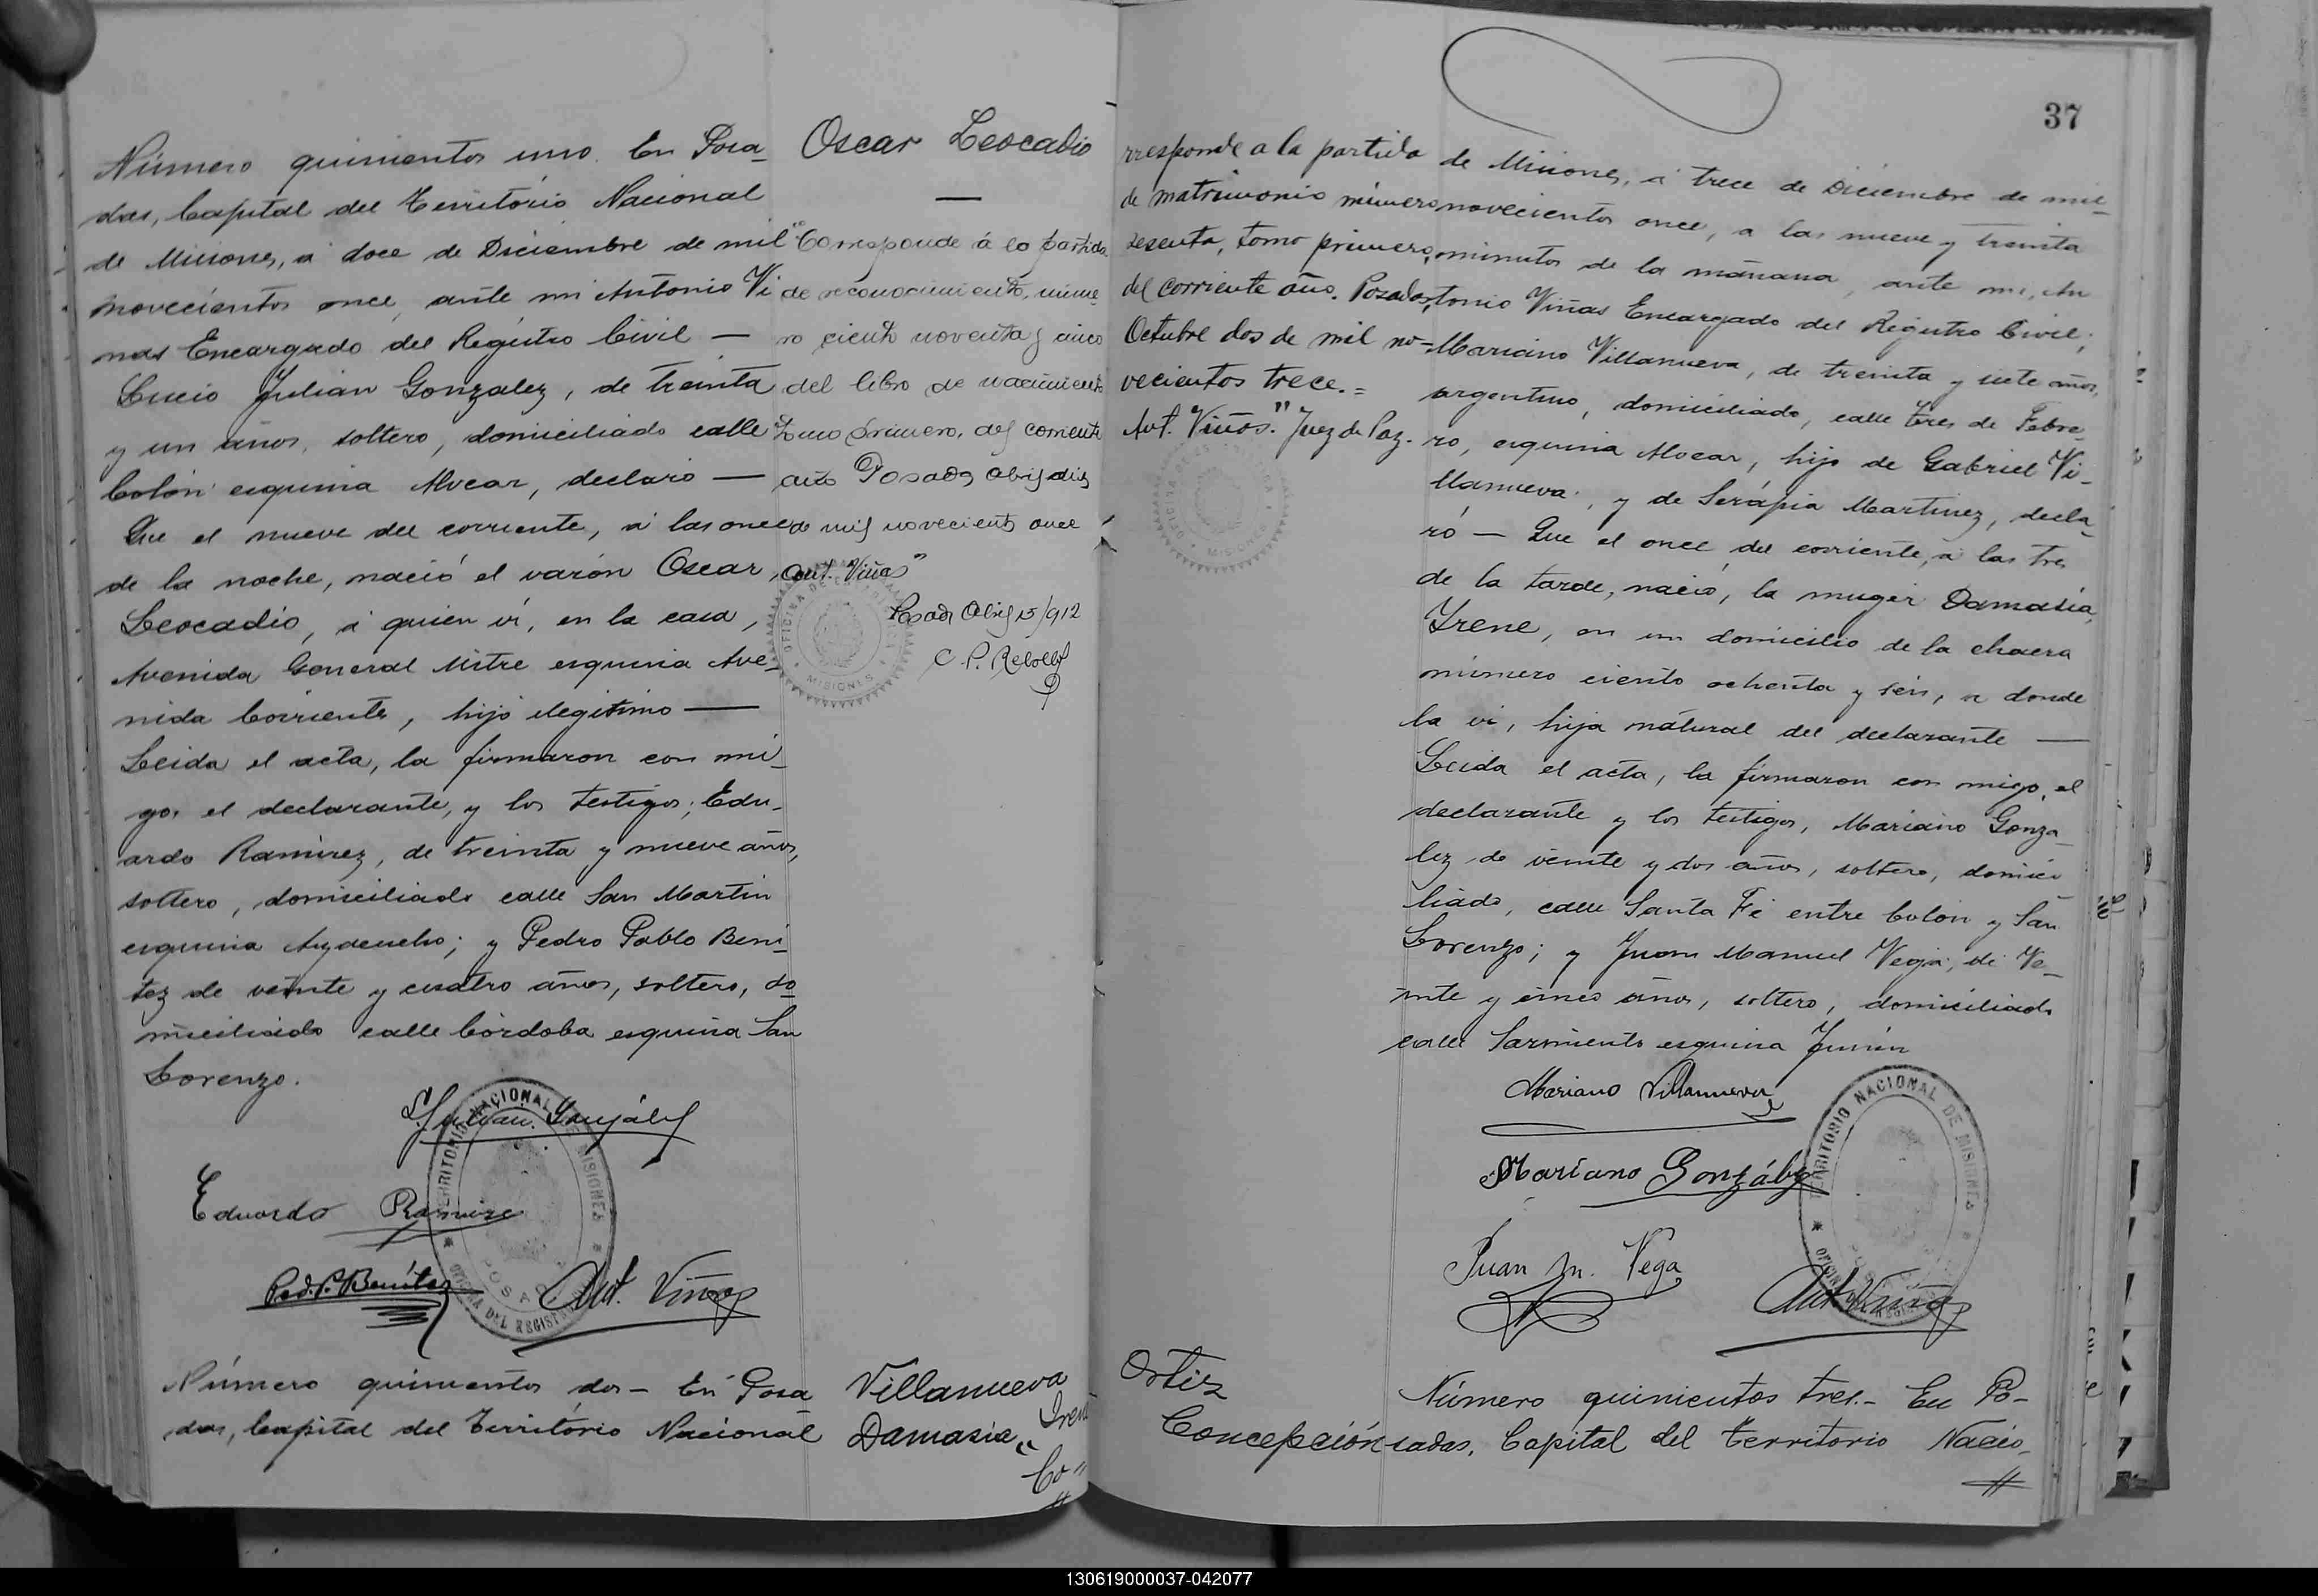 Número quinientos uno. En Posa-
das, Capital del Territorio Nacional
de Misiones, a doce de Diciembre de mil
novecientos once, ante mi Antonio Vi
nas Encargado del Registro Civil —
Lucio Julian Gonzalez, de treinta
y un años, soltero, domiciliado calle
Colón esquina Alvear, declaró —
Que el nueve del corriente, a las once
de la noche, nació el varón Oscar
Leocadio, a quien vi, en la casa,
Avenida General Mitre esquina Ave-
nida Corrientes, hijo ilegitimo —
Leida el acta, la firmaron con mi-
go, el declarante, y los testigos; Edu-
ardo Ramirez, de treinta y nueve años,
soltero, domiciliado calle San Martin
esquina Ayacucho; y Pedro Pablo Beni-
tez de veinte y cuatro años, soltero, do-
miciliado calle Córdoba esquina San
Lorenzo.
L. Julian Gonzálz
Eduardo Ramirez
Ped. P. Benítez
Ant. Viñas
TERRITORIO NACIONAL DE MISIONES
OFICINA DEL REGISTRO
POSADAS
Oscar Leocadio
—
"Corresponde á la partida
de reconocimiento, núme
ro ciento noventa y cinco
del libro de nacimiento
tomo primero, del corriente
año Posadas Abril diez
de mil novecientos once
Ant. Viñas"
Posadas Abril 15/912
C. P. Rebollo
MISIONES
Número quinientos dos - En Posa
das, Capital del Territorio Nacional
Villanueva
Damasia Irene
"Co-"
//
37
rresponde a la partida
de matrimonio número
sesenta, tomo primero,
del corriente año. Posadas,
Octubre dos de mil no-
vecientos trece.=
Ant. Viñas." Juez de Paz.
MISIONES
de Misiones, a trece de Diciembre de mil
novecientos once, a las nueve y treinta
minutos de la mañana, ante mi, An
tonio Viñas Encargado del Registro Civil;
Mariano Villanueva, de treinta y siete años,
argentino, domiciliado, calle tres de Febre-
ro, esquina Alvear, hijo de Gabriel Vi-
llanueva, y de Serápia Martinez, decla-
ró — Que el once del corriente, a las tres
de la tarde, nació, la muger Damasia,
Irene, en un domicilio de la chacra
número ciento ochenta y seis, a donde
la vi, hija natural del declarante —
Leida el acta, la firmaron con migo, el
declarante y los testigos, Mariano Gonza-
lez de veinte y dos años, soltero, domici-
liado, calle Santa Fé entre Colón y San
Lorenzo; y Juan Manuel Vega, de Ve-
inte y cinco años, soltero, domiciliado
calle Sarmiento esquina Junin
Mariano Villanueva
Mariano Gonzálz
Juan M. Vega
Ant. Viñas
TERRITORIO NACIONAL DE MISIONES
Ortiz
Concepción
Número quinientos tres.- En Po-
sadas, Capital del Territorio Nacio-
//
130619000037-042077